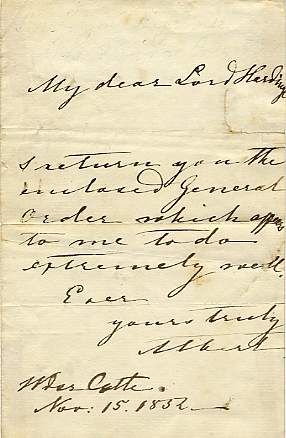 My dear Lord Hardinge
I return you the
enclosed General
Order which appears
to me to do
extremely well.
Ever
yours truly
Albert
Wdsr Cstle.
Nov: 15. 1852